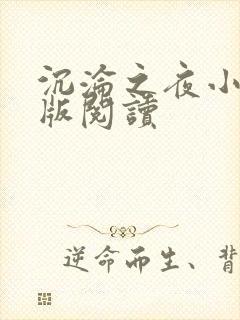 沉淪之夜小
版閱讀
逆命而生、背